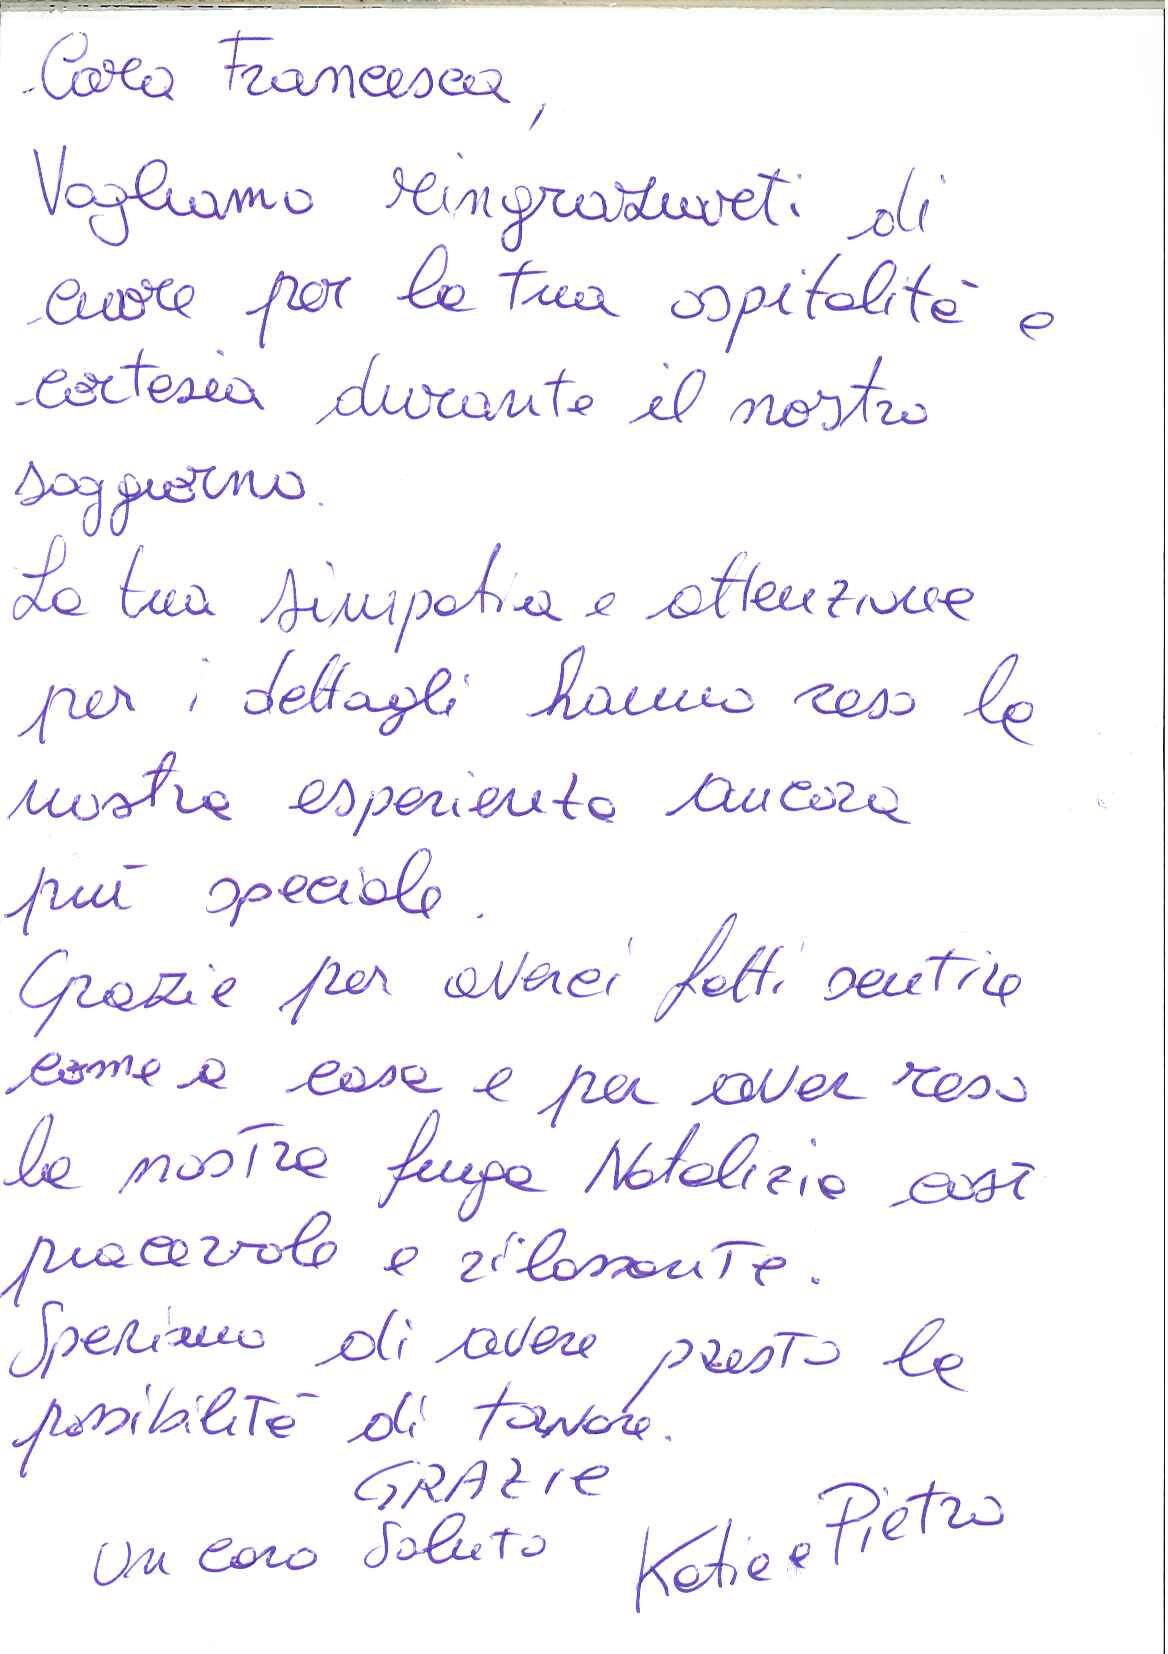 Cara Francesca,
Vogliamo ringraziarti di
cuore per la tua ospitalità e
cortesia durante il nostro
soggiorno.
La tua simpatia e attenzione
per i dettagli hanno reso la
nostra esperienza ancora
più speciale.
Grazie per averci fatti sentire
come a casa e per aver reso
la nostra fuga Natalizia così
piacevole e rilassante.
Speriamo di avere presto la
possibilità di tornare.
GRAZIE
Un caro Saluto Katia e Pietro